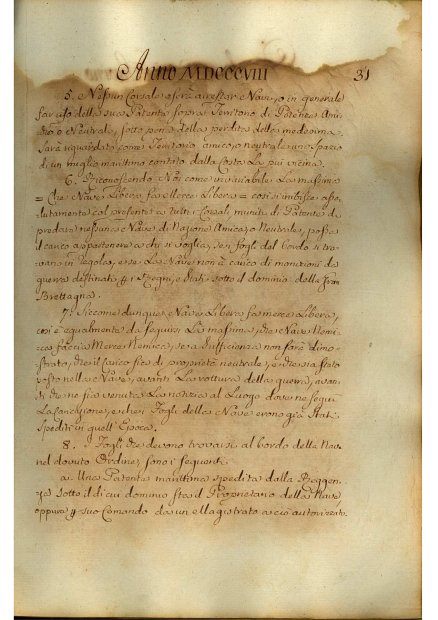 Anno MDCCCVIII 31
5. Nessun Corsale oserà arrestar e Nave, o in generale
far uso della sua Patente sopra i Territorio di Potenze Ami-
che o Neutrale, sotto pena della perdita della medesima.
Sarà riguardato come Territorio amico, o neutrale uno spazio
di un miglio marittimo contato dalla Costa la più vicina.
6. Riconoscendo Noi come invariabile la massima
= che Nave Libera fa Merce Libera = così s'inibisce asso-
lutamente col presente a tutti i Corsali muniti di Patente di
predare nessuna e Nave di Nazione Amica, o Neutrale, possa
il carico appartenere a chi si voglia, se i fogli del bordo si tro-
vano in regola, e se la Nave non à carico di munizioni da
guerra destinate pe i Regni, e Stati sotto il dominio della Gran
Brettagna.
7. Siccome dunque Nave Libera fa merce Libera,
così è egualmente da seguirsi la massima, che Nave Nemi-
ca faccia Merce Nemica, se a sufficienza non sarà dimo-
strato, che il carico sia di proprietà neutrale, e che sia stato
posto nella Nave, avanti la rottura della guerra, avan-
ti che ne sia venuta la notizia al Luogo dove ne seguì
la caricazione, e che i Fogli della Nave erono già stati
spediti in quell'Epoca.
8. I Fogli che devono trovarsi al bordo della Nave
nel dovuto Ordine, sono i seguenti
a. Una Patente marittima spedita dalla Reggen-
za sotto il di cui dominio sta il Proprietario della Nave,
oppure p suo Comando da un Magistrato a ciò autorizzato.